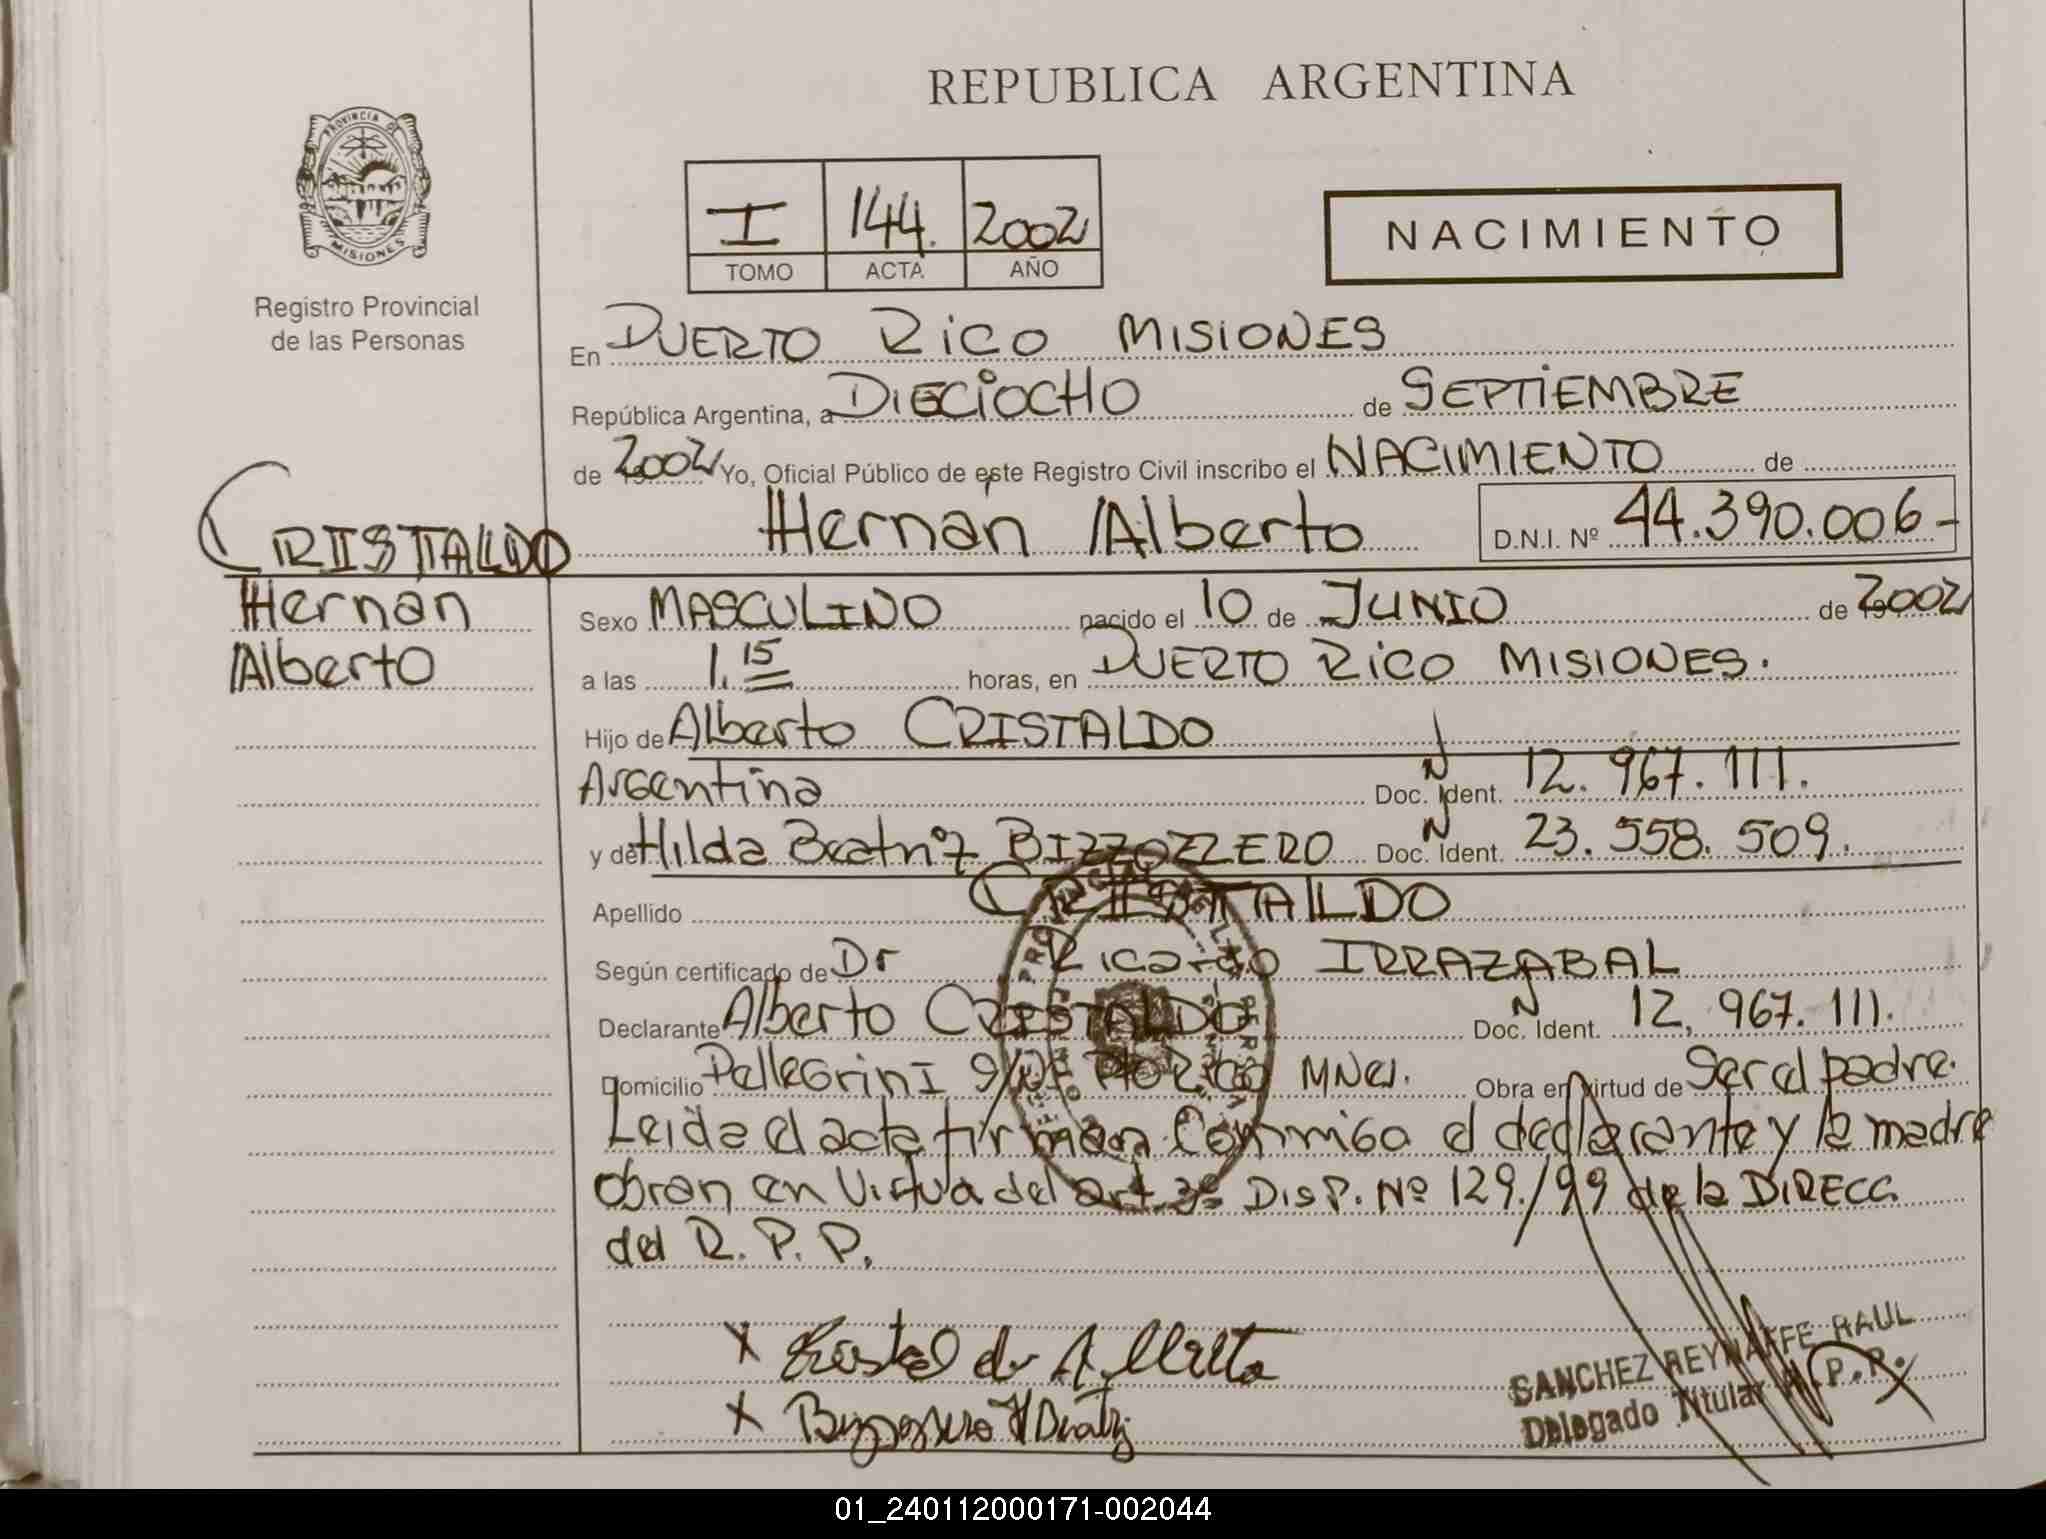 REPUBLICA ARGENTINA
PROVINCIA DE
MISIONES
Registro Provincial
de las Personas
I 144. 2002
TOMO ACTA AÑO
NACIMIENTO
En PUERTO RICO MISIONES
República Argentina, a DIECIOCHO de SEPTIEMBRE
de 2002 Yo, Oficial Público de este Registro Civil inscribo el NACIMIENTO de
Hernan Alberto D.N.I. Nº 44.390.006-
CRISTALDO
Hernan
Alberto
Sexo MASCULINO nacido el 10 de JUNIO de 2002
a las 1.15 horas, en PUERTO RICO MISIONES.
Hijo de Alberto CRISTALDO
Argentina Doc. N Ident. 12.967.111.
y de Hilda Beatriz BIZZOZZERO Doc. N Ident. 23.558.509.
Apellido CRISTALDO
Según certificado de Dr Ricardo IRRAZABAL
Declarante Alberto CRISTALDO Doc. N Ident. 12.967.111.
Domicilio Pellegrini Mnes. Obra en virtud de Ser el padre.
Leida el acta firman Conmigo el declarante y la madre
obran en Virtud del art. 3º DISP. Nº 129./99 de la DIRECC.
del R.P.P.
X
X Beatriz
SANCHEZ REYNAFFE RAUL
Delegado Titular R.P.P.
01_240112000171-002044